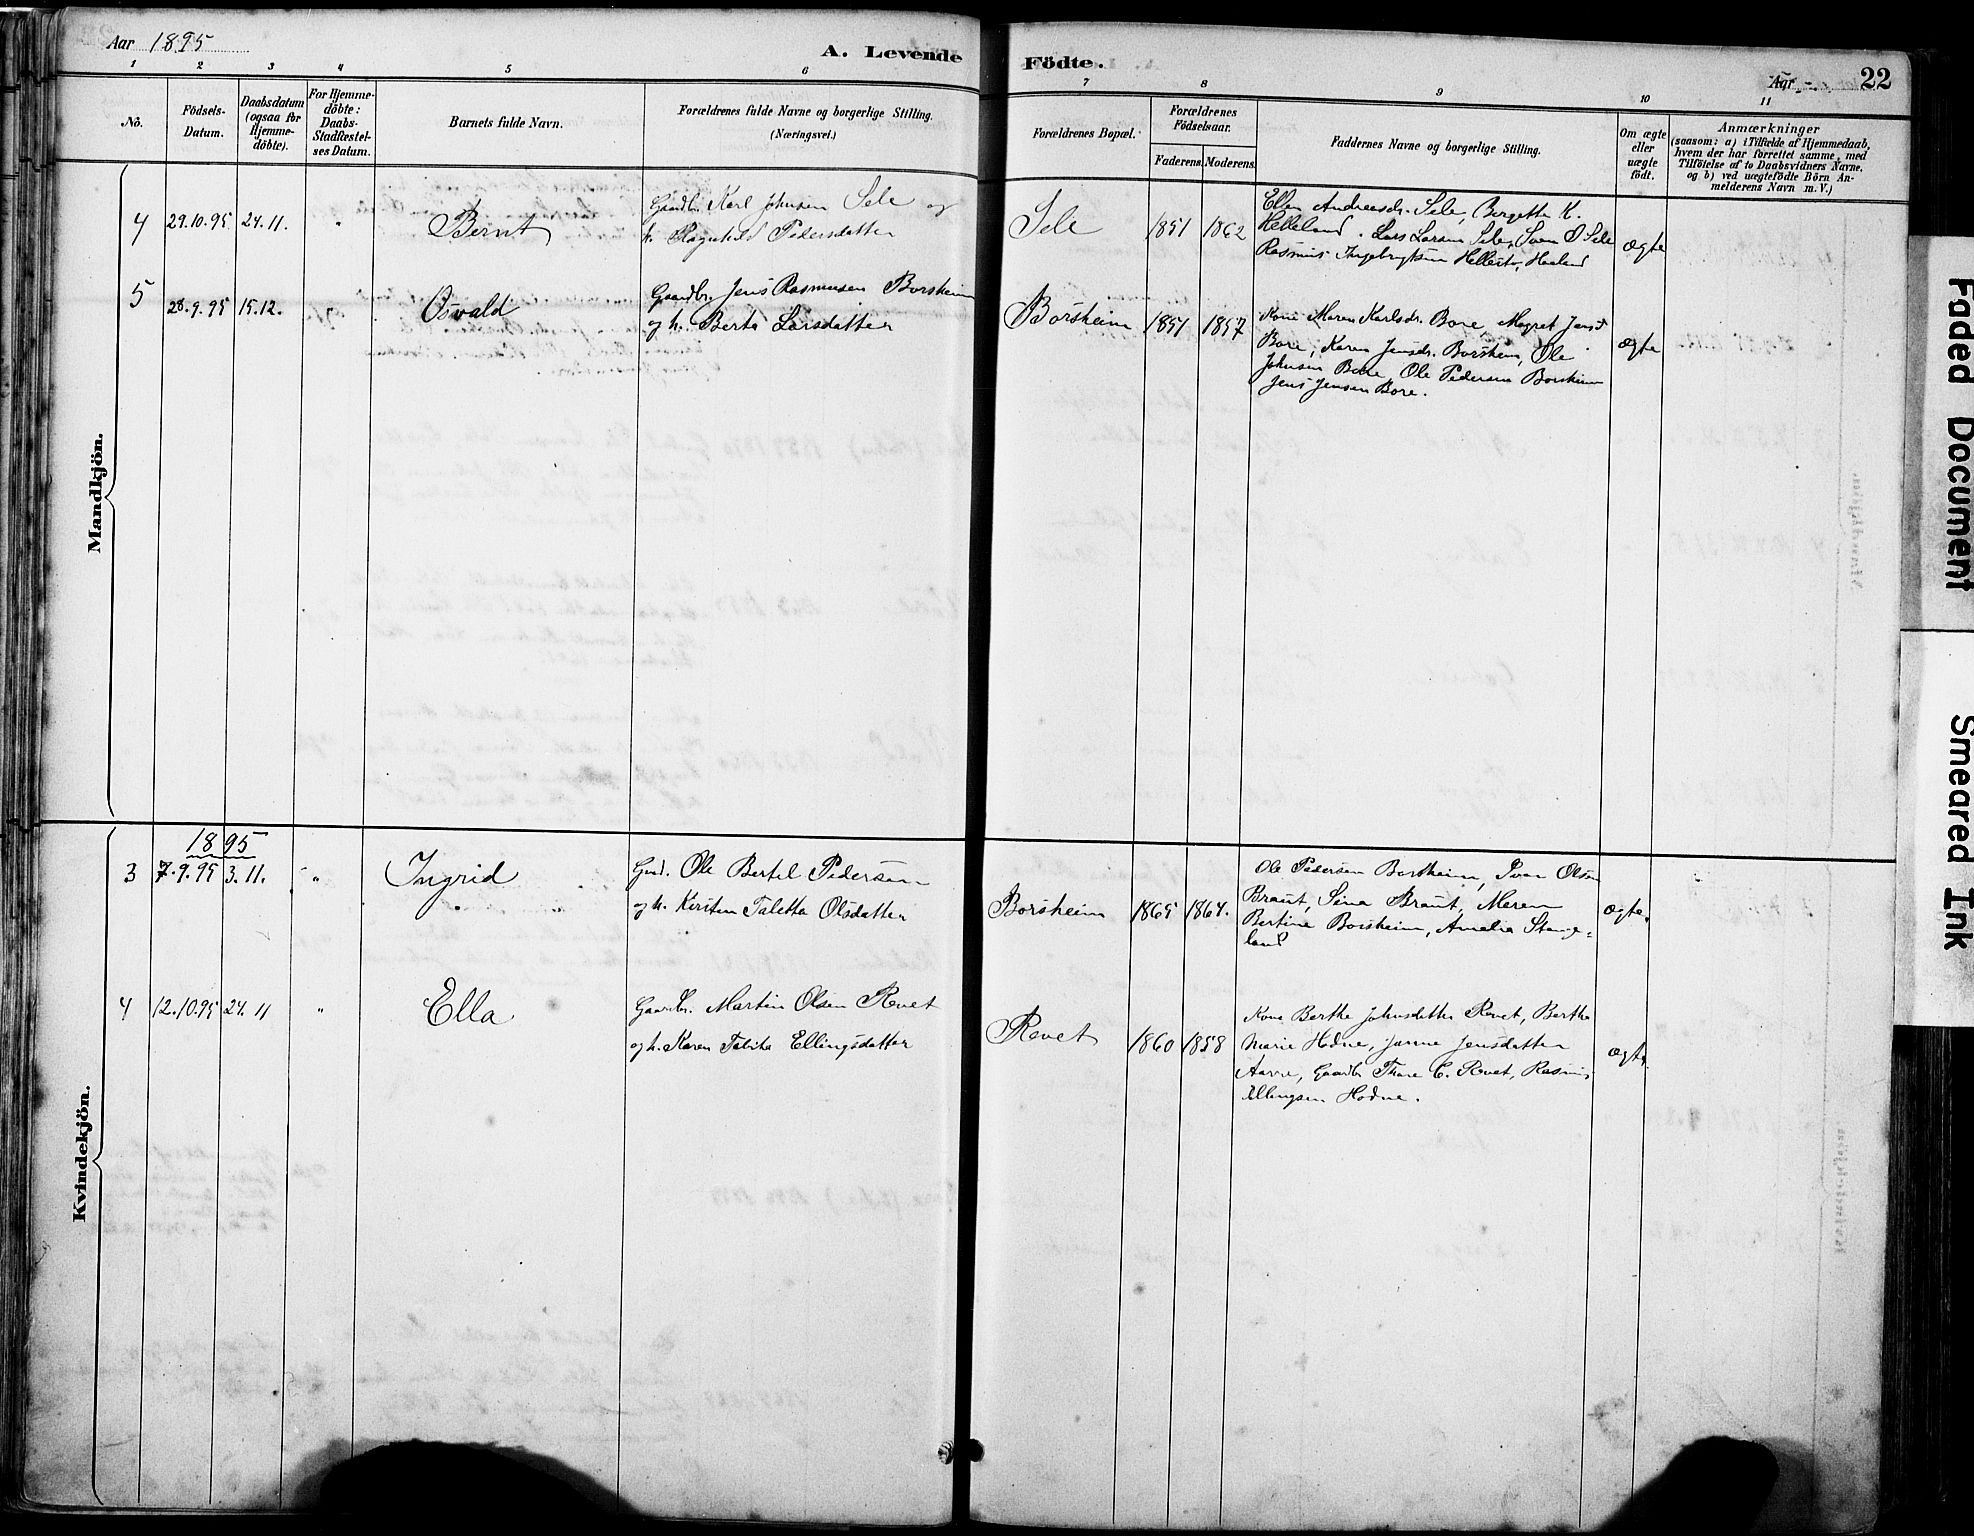 Aar 1895
A. Levende Födte.
Aar 22
1 2 3 4 5 6 7 8 9 10 11
Nô.
Födsels-
Datum.
Daabsdatum
(ogsaa for
Hjemme-
döbte).
For Hjemme-
döbte:
Daabs-
Stadfæstel-
ses Datum.
Barnets fulde Navn.
Forældrenes fulde Navne og borgerlige Stilling.
(Næringsvei.)
Forældrenes Bopæl.
Forældrenes
Födselsaar.
Faderens. Moderens.
Faddernes Navne og borgerlige Stilling.
Om ægte
eller
uægte
födt.
Anmærkninger
(saasom: a) i Tilfælde af Hjemmedaab,
hvem der har forrettet samme, med
Tilföielse af to Daabsvidners Navne,
og b) ved uægtefödte Börn An-
melderens Navn m. V.)
Mandkjön.
4 29.10.95 24.11. " Bernt
Gaardbr. Karl Johnsen Sele og
h. Ragnhild Pedersdatter
Sele 1851 1862
Ellen Andreasdr. Sele, Bergette K.
Helleland. Lars Larsen Sele, Sven O Sele
Rasmus Ingebrigtsen Hellestø, Haaland
ægte
5 28.9.95 15.12. Osvald
Gaardbr. Jens Rasmusen Borsheim
og h. Berta Larsdatter
Borsheim 1851 1857
Kone Maren Karlsdr. Bore, Magret Jensd
Bore, Karen Jensdr. Borsheim, Ole
Johnsen Bore, Ole Pedersen Borsheim
Jens Jensen Bore.
ægte
Kvindekjön.
1895
3 7.9.95 3.11. " Ingrid
Gmd. Ole Bertel Pedersen
og h. Kirsten Taletta Olsdatter
Borsheim 1865 1864.
Ole Pedersen Borsheim, Ivar Olsen
Braut, Sina Braut, Maren
Bertine Borsheim, Amalia Stange-
land
ægte.
4 12.10.95 24.11 " Ella
Gaardbr. Martin Olsen Revet
og h. Karen Tabita Ellingsdatter
Revet 1860 1858
Kone Berthe Johnsdatter Revet, Berthe
Marie Hodne, Janne Jensdatter
Aarre, Gaardbr Thore C. Revet, Rasmus
Ellingsen Hodne.
ægte
Faded Document
Smeared Ink